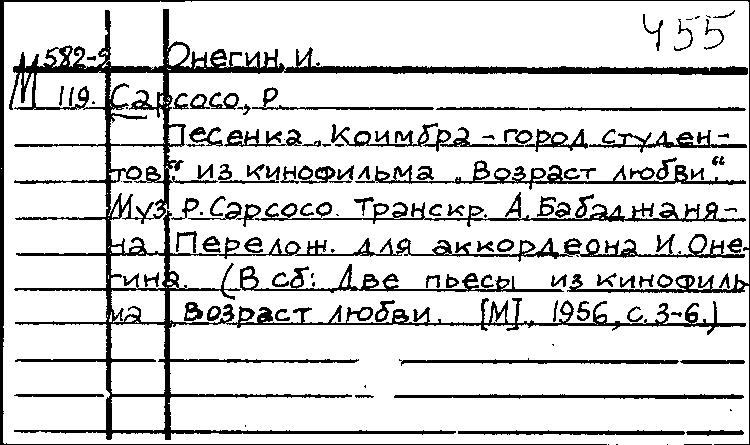 455
М 582-9 Онегин, И.
119. Сарсосо, Р.
Песенка „Коимбра – город студен-
тов“ из кинофильма „Возраст любви“.
Муз. Р. Сарсосо. Транскр. А. Бабаджаня-
на. Перелож. для аккордеона И. Оне-
гина. (В сб: Две пьесы из кинофиль-
ма „Возраст любви. [М]., 1956, с. 3-6.)